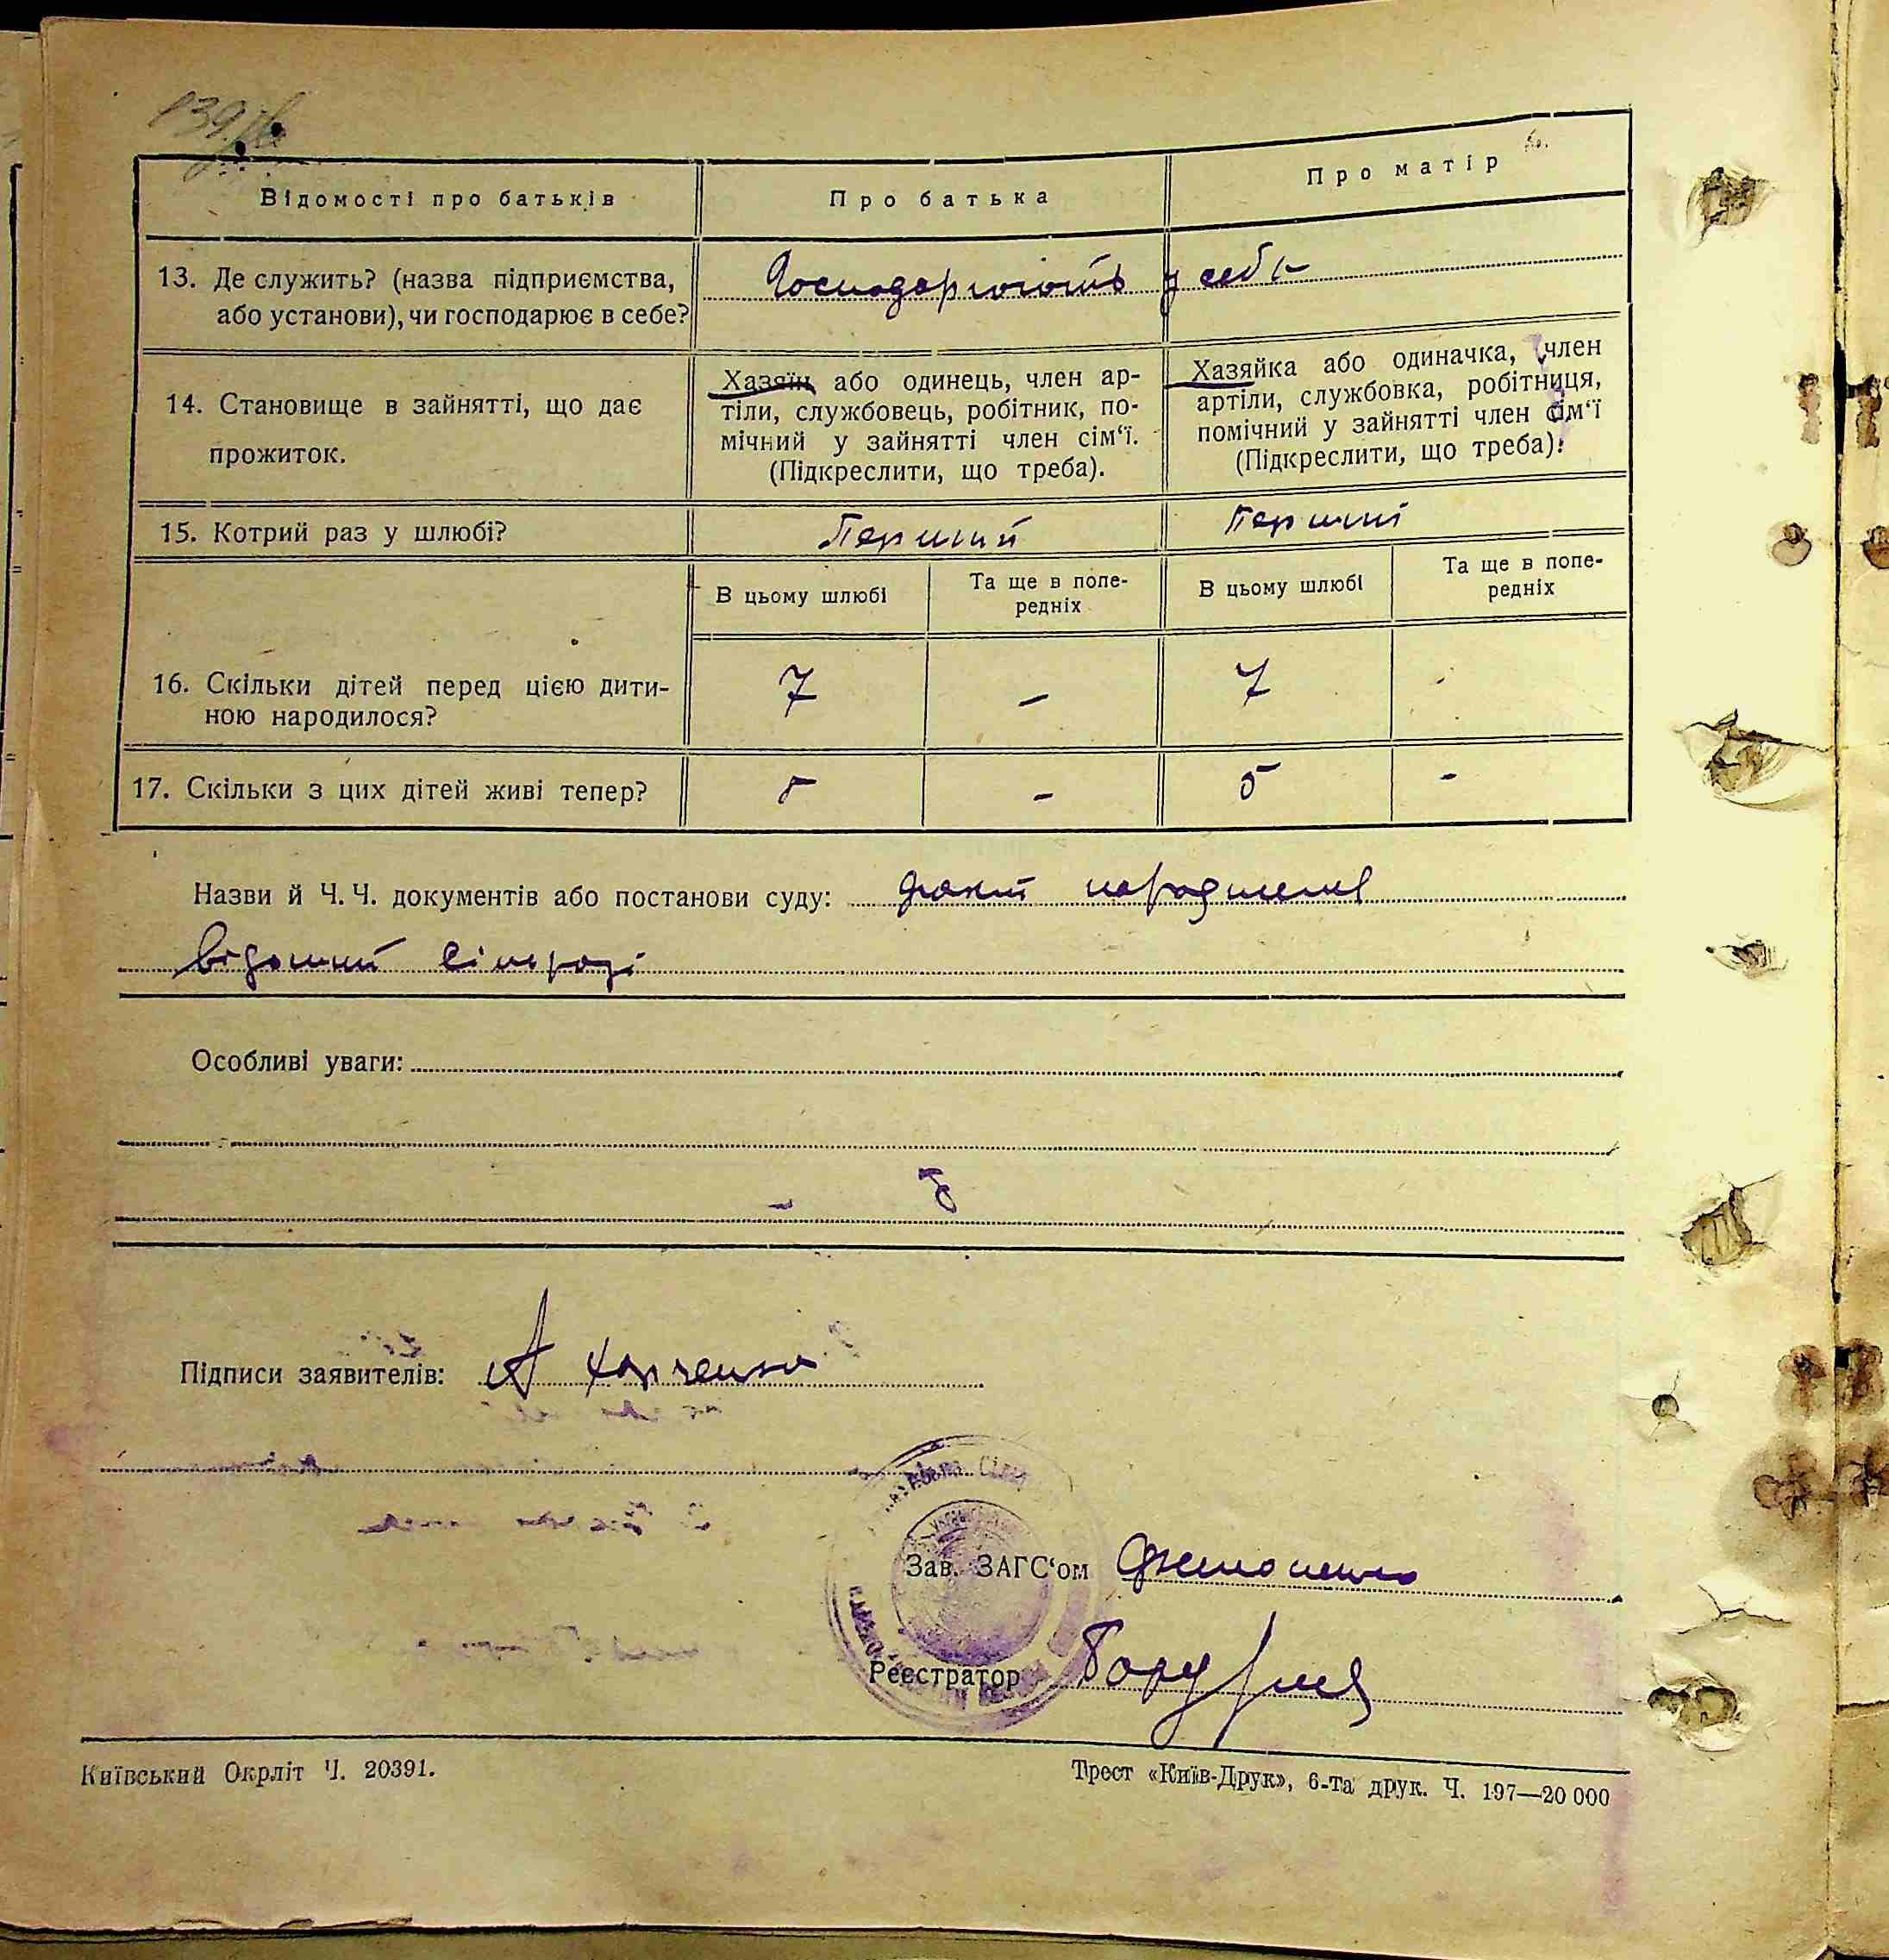 Відомості про батьків
Про батька
Про матір
13. Де служить? (назва підприємства,
або установи), чи господарює в себе?
Господарюють у себе
14. Становище в зайнятті, що дає
прожиток.
Хазяїн або одинець, член ар-
тіли, службовець, робітник, по-
мічний у зайнятті член сім‘ї.
(Підкреслити, що треба).
Хазяйка або одиначка, член
артіли, службовка, робітниця,
помічний у зайнятті член сім‘ї
(Підкреслити, що треба).
15. Котрий раз у шлюбі?
Перший
Перший
В цьому шлюбі
Та ще в попе-
редніх
В цьому шлюбі
Та ще в попе-
редніх
16. Скільки дітей перед цією дити-
ною народилося?
7 - 7
17. Скільки з цих дітей живі тепер?
5 - 5 -
Назви й Ч. Ч. документів або постанови суду: факт народження
відомий сільраді
Особливі уваги:
Підписи заявителів: А Харченко
Зав. ЗАГС‘ом
Реєстратор
Київський Окрліт Ч. 20391.
Трест «Київ-Друк», 6-та друк. Ч. 197—20 000